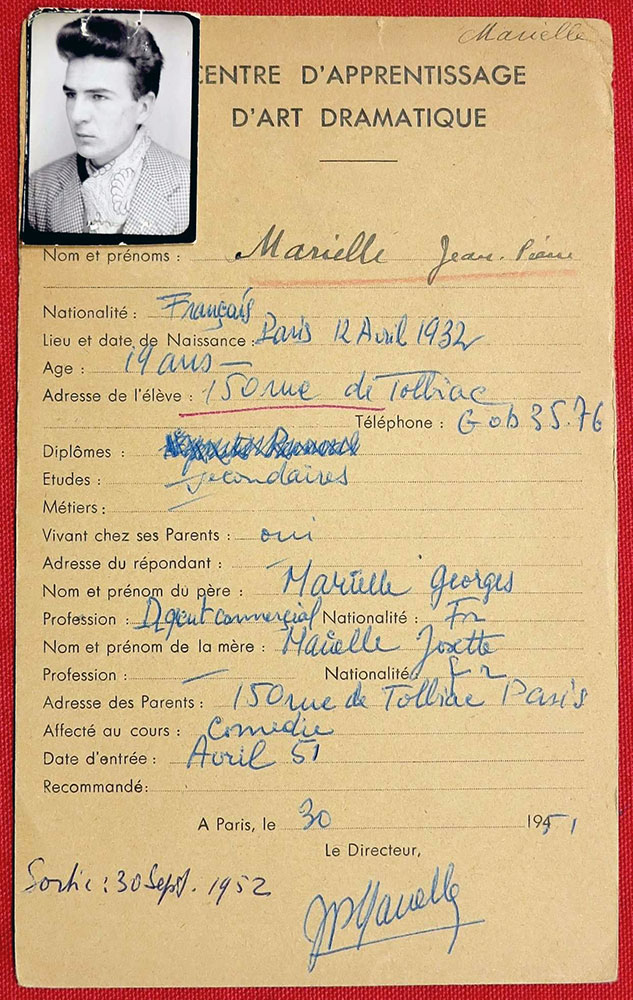 Marielle
CENTRE D'APPRENTISSAGE
D'ART DRAMATIQUE
Nom et prénoms : Marielle Jean-Pierre
Nationalité : Français
Lieu et date de Naissance : Paris 12 Avril 1932
Age : 19 ans —
Adresse de l'élève : 150 rue de Tolbiac
Téléphone : GOB 35.76
Diplômes :
Etudes : Secondaires
Métiers : —
Vivant chez ses Parents : oui
Adresse du répondant : —
Nom et prénom du père : Marielle Georges
Profession : Agent commercial Nationalité : Fr
Nom et prénom de la mère : Marielle Josette
Profession : — Nationalité : Fr
Adresse des Parents : 150 rue de Tolbiac Paris
Affecté au cours : Comedie
Date d'entrée : Avril 51
Recommandé :
A Paris, le 30 1951
Le Directeur,
Sortie : 30 Sept. 1952
JPMarielle